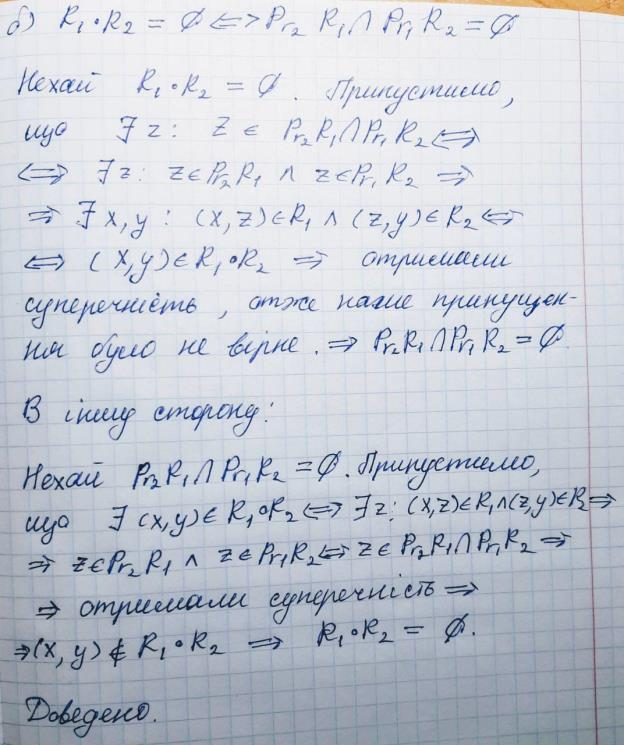 б) R₁∘R₂ = ∅ ⟺ Pr₂ R₁ ∩ Pr₁ R₂ = ∅
Нехай R₁∘R₂ = ∅. Припустимо,
що ∃ z : z ∈ Pr₂R₁ ∩ Pr₁R₂ ⟺
⟺ ∃ z : z ∈ Pr₂R₁ ∧ z ∈ Pr₁R₂ ⇒
⇒ ∃ x, y : (x, z) ∈ R₁ ∧ (z, y) ∈ R₂ ⟺
⟺ (x, y) ∈ R₁∘R₂ ⇒ отримали
суперечність, отже наше припущен-
ня було не вірне. ⇒ Pr₂R₁ ∩ Pr₁R₂ = ∅.
В іншу сторону:
Нехай Pr₂R₁ ∩ Pr₁R₂ = ∅. Припустимо,
що ∃ (x, y) ∈ R₁∘R₂ ⟺ ∃ z : (x, z) ∈ R₁ ∧ (z, y) ∈ R₂ ⇒
⇒ z ∈ Pr₂R₁ ∧ z ∈ Pr₁R₂ ⟺ z ∈ Pr₂R₁ ∩ Pr₁R₂ ⇒
⇒ отримали суперечність ⇒
⇒ (x, y) ∉ R₁∘R₂ ⇒ R₁∘R₂ = ∅.
Доведено.